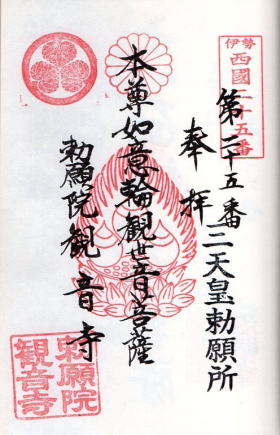 伊勢
西國二十五番
第二十五番
三天皇勅願所
奉拝
本尊如意輪観世音菩薩
勅願院観音寺
勅願院
観音寺